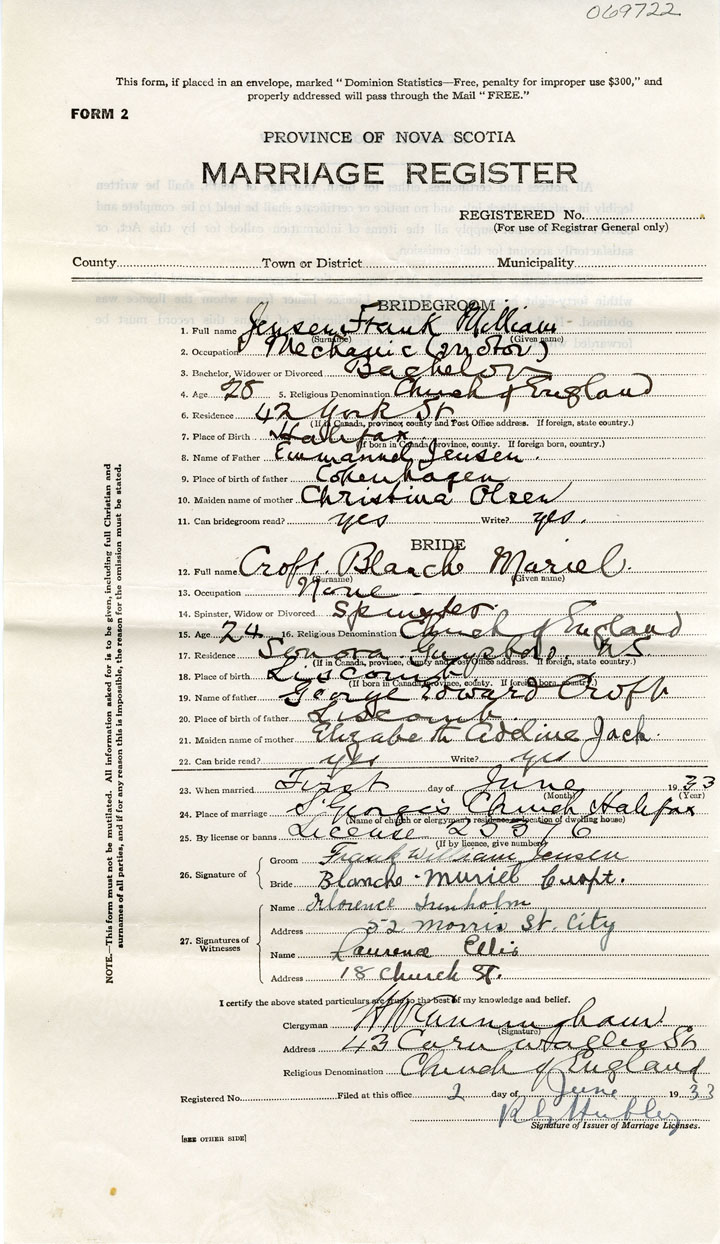 069722
This form, if placed in an envelope, marked "Dominion Statistics—Free, penalty for improper use $300," and
properly addressed will pass through the Mail "FREE."
FORM 2
PROVINCE OF NOVA SCOTIA
MARRIAGE REGISTER
REGISTERED No.
(For use of Registrar General only)
County Town or District Municipality
BRIDEGROOM
1. Full name Jensen Frank William
(Surname) (Given name)
2. Occupation Mechanic (motor)
3. Bachelor, Widower or Divorced Bachelor
4. Age 28 5. Religious Denomination Church of England
6. Residence 42 York St
(If in Canada, province, county and Post Office address. If foreign, state country.)
7. Place of Birth Halifax
(If born in Canada, province, county. If foreign born, country.)
8. Name of Father Emmanuel Jensen.
9. Place of birth of father Copenhagen
10. Maiden name of mother Christina Olsen
11. Can bridegroom read? yes Write? yes.
BRIDE
12. Full name Croft. Blanche Mariel.
(Surname) (Given name)
13. Occupation None
14. Spinster, Widow or Divorced Spinster.
15. Age 24 16. Religious Denomination Church of England
17. Residence Sonora Guysboro. NS
(If in Canada, province, county and Post Office address. If foreign, state country.)
18. Place of birth Liscomb
(If born in Canada, province, county. If foreign born, country.)
19. Name of father George Edward Croft
20. Place of birth of father Liscomb.
21. Maiden name of mother Elizabeth Adeline Jack.
22. Can bride read? yes Write? yes
23. When married First day of June 1933
(Month) (Year)
24. Place of marriage St George's Church Halifax
(Name of church or clergyman's residence or location of dwelling house)
25. By license or banns License 25376
(If by licence, give number)
26. Signature of
Groom Frank William Jensen
Bride Blanche Muriel Croft.
27. Signatures of Witnesses
Name Florence
Address 52 Morris St. City
Name Laurence Ellis
Address 18 Church St.
I certify the above stated particulars are true to the best of my knowledge and belief.
Clergyman Cunningham
(Signature)
Address 43 Cornwallis St
Religious Denomination Church of England
Registered No. Filed at this office 2 day of June 1933
Hubley
Signature of Issuer of Marriage Licenses.
[SEE OTHER SIDE]
NOTE.—This form must not be mutilated. All information asked for is to be given, including full Christian and
surnames of all parties, and if for any reason this is impossible, the reason for the omission must be stated.